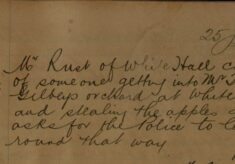 25
Mr Rust of White Hall
of someone getting into Mr
Gilbeys orchard at White
and stealing the apples
asks for the Police to
round that way